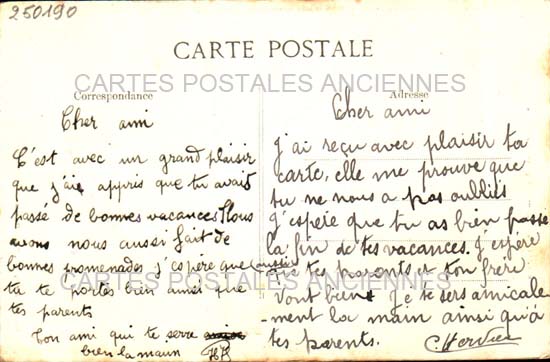 250190
CARTE POSTALE
CARTES POSTALES ANCIENNES
Correspondance
Cher ami
C'est avec un grand plaisir
que j'ai appris que tu avais
passé de bonnes vacances Nous
avons nous aussi fait de
bonnes promenades j'espère que
tu te portes bien ainsi que
tes parents
Ton ami qui te serre
bien la main
Adresse
Cher ami
J'ai reçu avec plaisir ta
carte, elle me prouve que
tu ne nous a pas oubliés
J'espère que tu as bien passé
la fin de tes vacances. J'espère
que tes parents et ton frère
vont bien. Je te sers amicale-
ment la main ainsi qu'à
tes parents.
CARTES POSTALES ANCIENNES